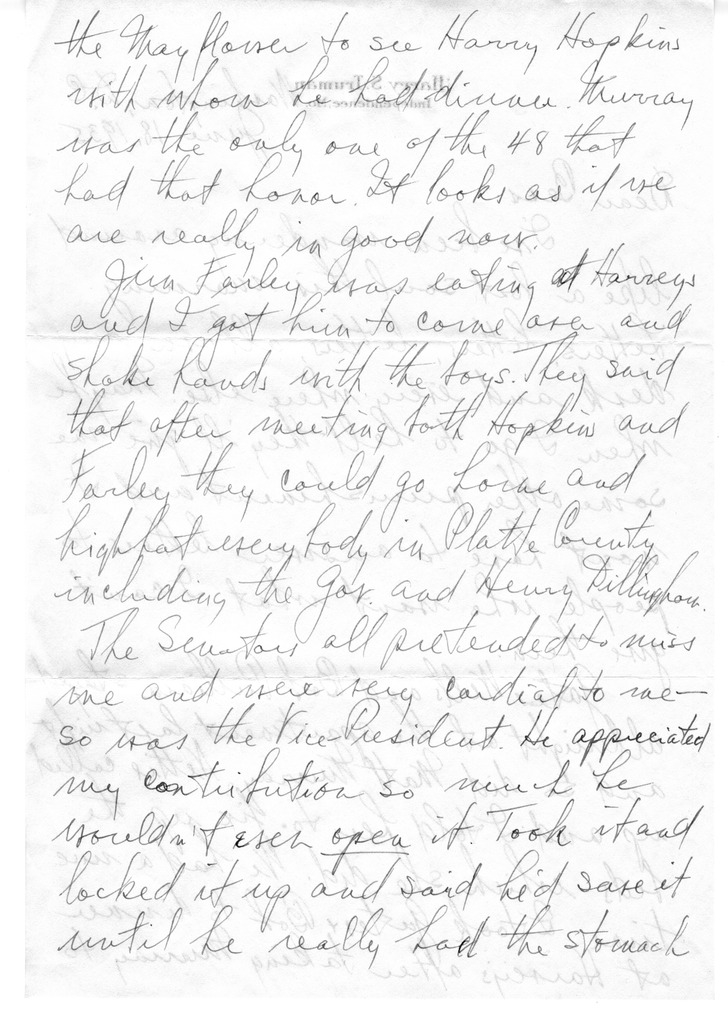 the Mayflower to see Harry Hopkins
with whom he had dinner. Murray
was the only one of the 48 that
had that honor. It looks as if we
are really in good now.
Jim Farley was eating at Harveys
and I got him to come over and
shake hands with the boys. They said
that after meeting both Hopkins and
Farley they could go home and
highhat everybody in Platte County
including the Gov. and Henry Dillingham.
The Senators all pretended to miss
me and were very cordial to me—
so was the Vice President. He appreciated
my contribution so much he
wouldn't even open it. Took it and
locked it up and said he'd save it
until he really had the stomach